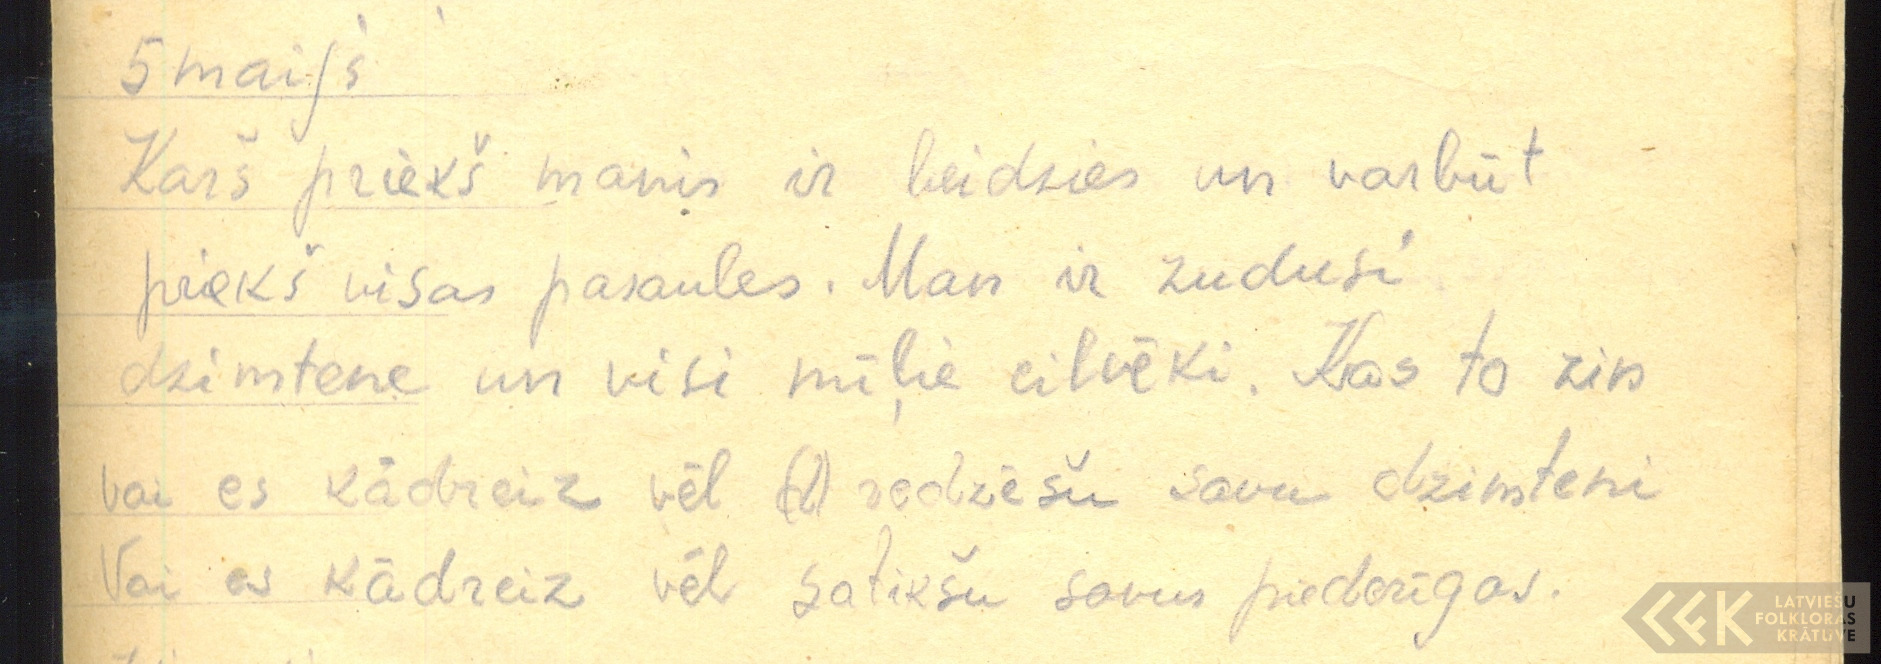 5 maijs
Karš priekš manis ir beidzies un varbūt
priekš visas pasaules. Man ir zudusi
dzimtene un visi mīļie cilvēki. Kas to zin
vai es kādreiz vēl redzēšu savu dzimteni
Vai es kādreiz vēl satikšu savus piederīgos.
LATVIEŠU
FOLKLORAS
KRĀTUVE